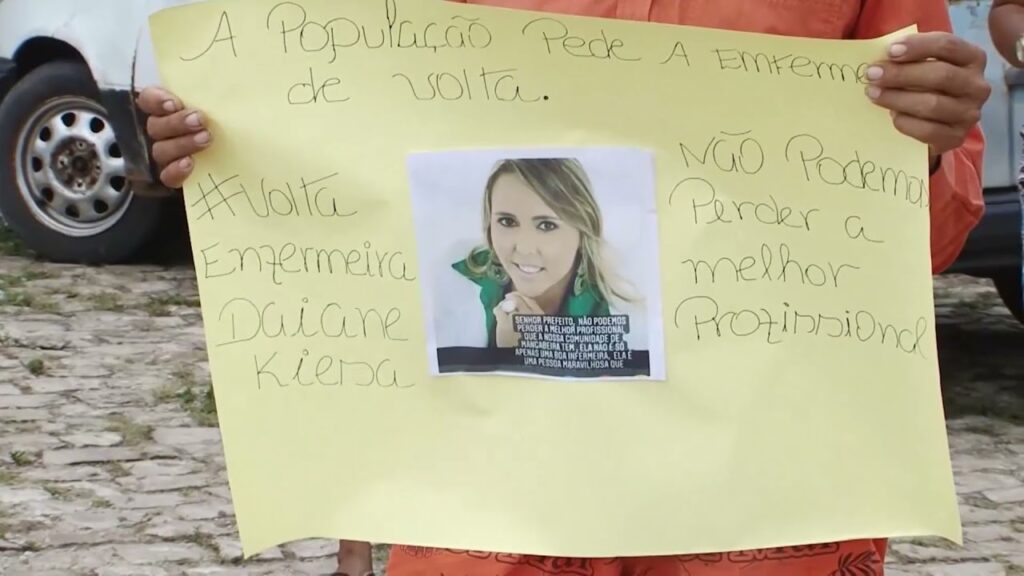 A População Pede A Emferme
de volta.
#Volta
Enfermeira
Daiane
Kiesa
SENHOR PREFEITO, NÃO PODEMOS
PERDER A MELHOR PROFISSIONAL
QUE A NOSSA COMUNIDADE DE
TEM. ELA NÃO É SÓ
APENAS UMA BOA INFERMEIRA, ELA É
UMA PESSOA MARAVILHOSA QUE
NÃO Podemos
Perder a
melhor
Profissional